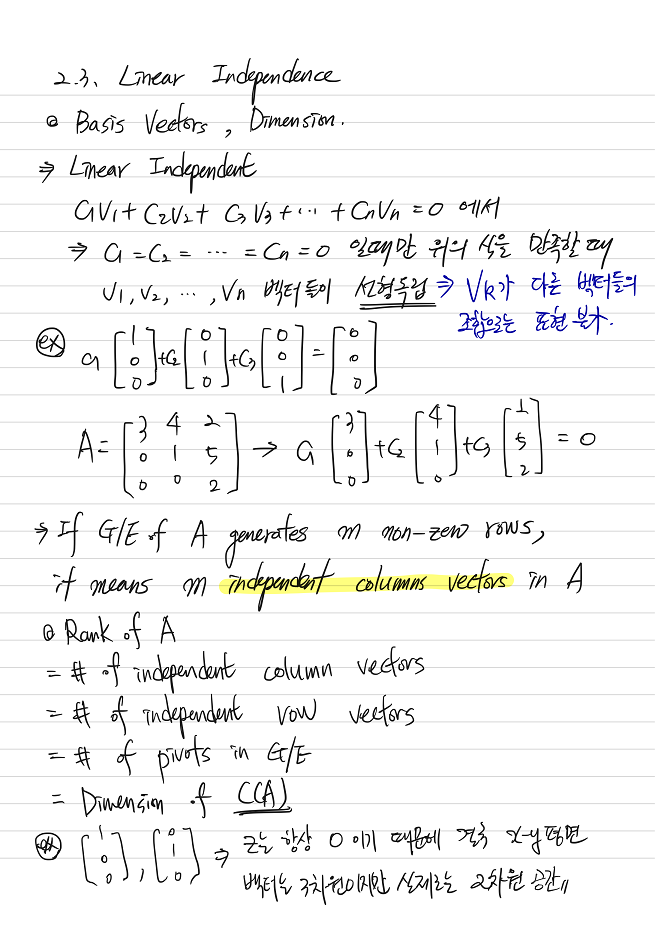 2.3. Linear Independence
@ Basis Vectors, Dimension.
⇒ Linear Independent
C1V1 + C2V2 + C3V3 + ... + CnVn = 0 에서
⇒ C1 = C2 = ... = Cn = 0 일때만 위의 식을 만족할 때
V1, V2, ..., Vn 벡터들이 선형독립 ⇒ VK가 다른 벡터들의
조합으로는 표현 불가.
ex) C1 [1 0 0] + C2 [0 1 0] + C3 [0 0 1] = [0 0 0]
A = [3 4 2
0 1 5
0 0 2] → C1 [3 0 0] + C2 [4 1 0] + C3 [1 5 2] = 0
⇒ If G/E of A generates m non-zero rows,
it means m independent columns vectors in A
@ Rank of A
= # of independent column vectors
= # of independent row vectors
= # of pivots in G/E
= Dimension of C(A)
ex) [1 0 0], [0 1 0] ⇒ z는 항상 0 이기 때문에 결국 x-y 평면
벡터는 3차원이지만 실제로는 2차원 공간